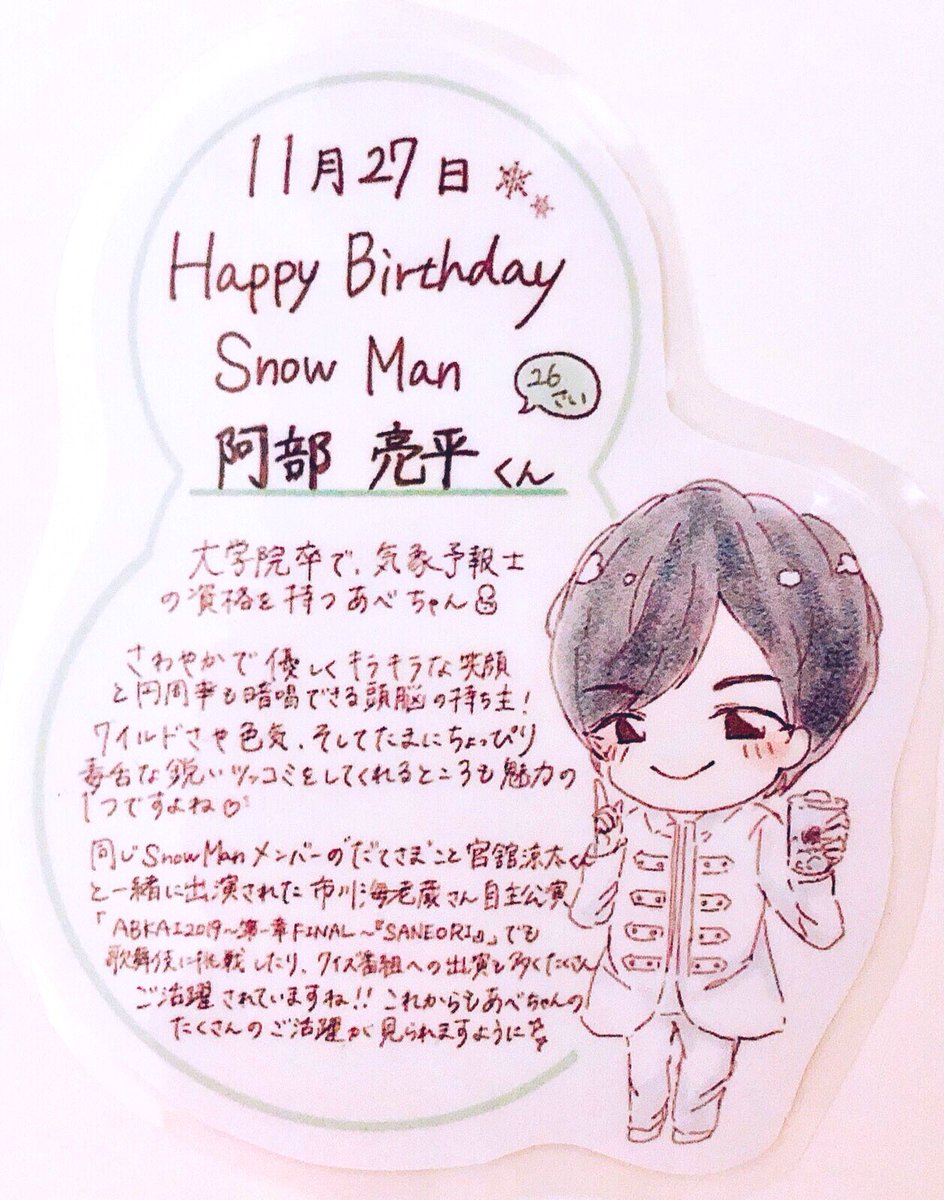 11月27日
Happy Birthday
Snow Man
26
さい
阿部 亮平くん
大学院卒で、気象予報士
の資格を持つあべちゃん
さわやかで優しくキラキラな笑顔
と円周率も暗唱できる頭脳の持ち主!
ワイルドさや色気、そしてたまにちょっぴり
毒舌な鋭いツッコミをしてくれるところも魅力の
1つですよね♡
同じSnow Manメンバーの"だてさま"こと宮舘涼太くん
と一緒に出演された市川海老蔵さん自主公演
「ABKAI2019〜第一章FINAL〜『SANEORI』」でも
歌舞伎に挑戦したり、クイズ番組への出演も多くたくさん
ご活躍されていますね!! これからもあべちゃんの
たくさんのご活躍が見られますように